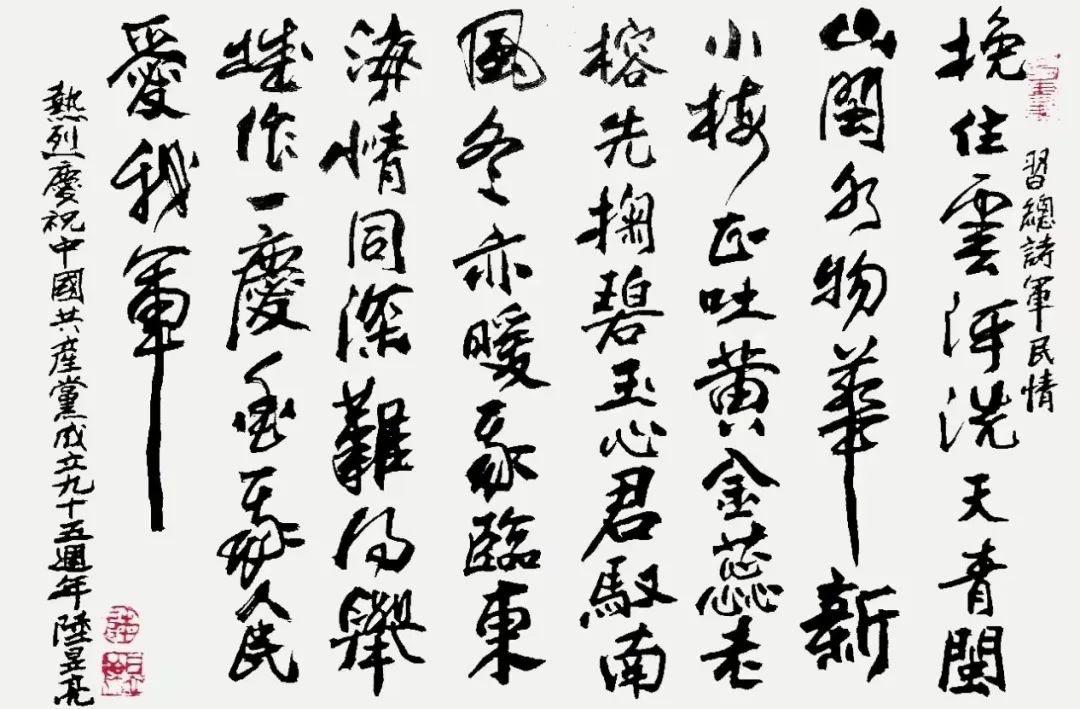 習總詩軍民情
挽住雲河洗天青閩
山閩水物華新
小梅正吐黄金蕊老
榕先掬碧玉心君馭南
風冬亦暖我臨東
海情同深難得舉
城作一慶愛我人民
愛我軍
熱烈慶祝中國共産黨成立九十五週年陸昱亮